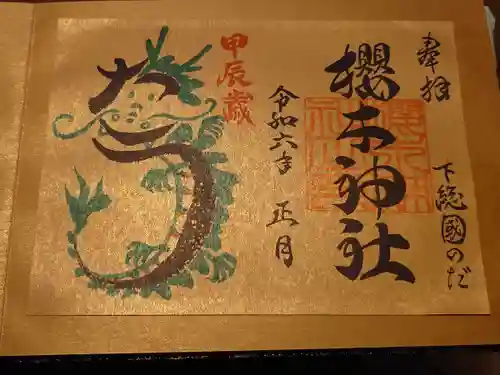 奉拝
下総國のだ
櫻木神社
令和六年 正月
甲辰歳
たつ